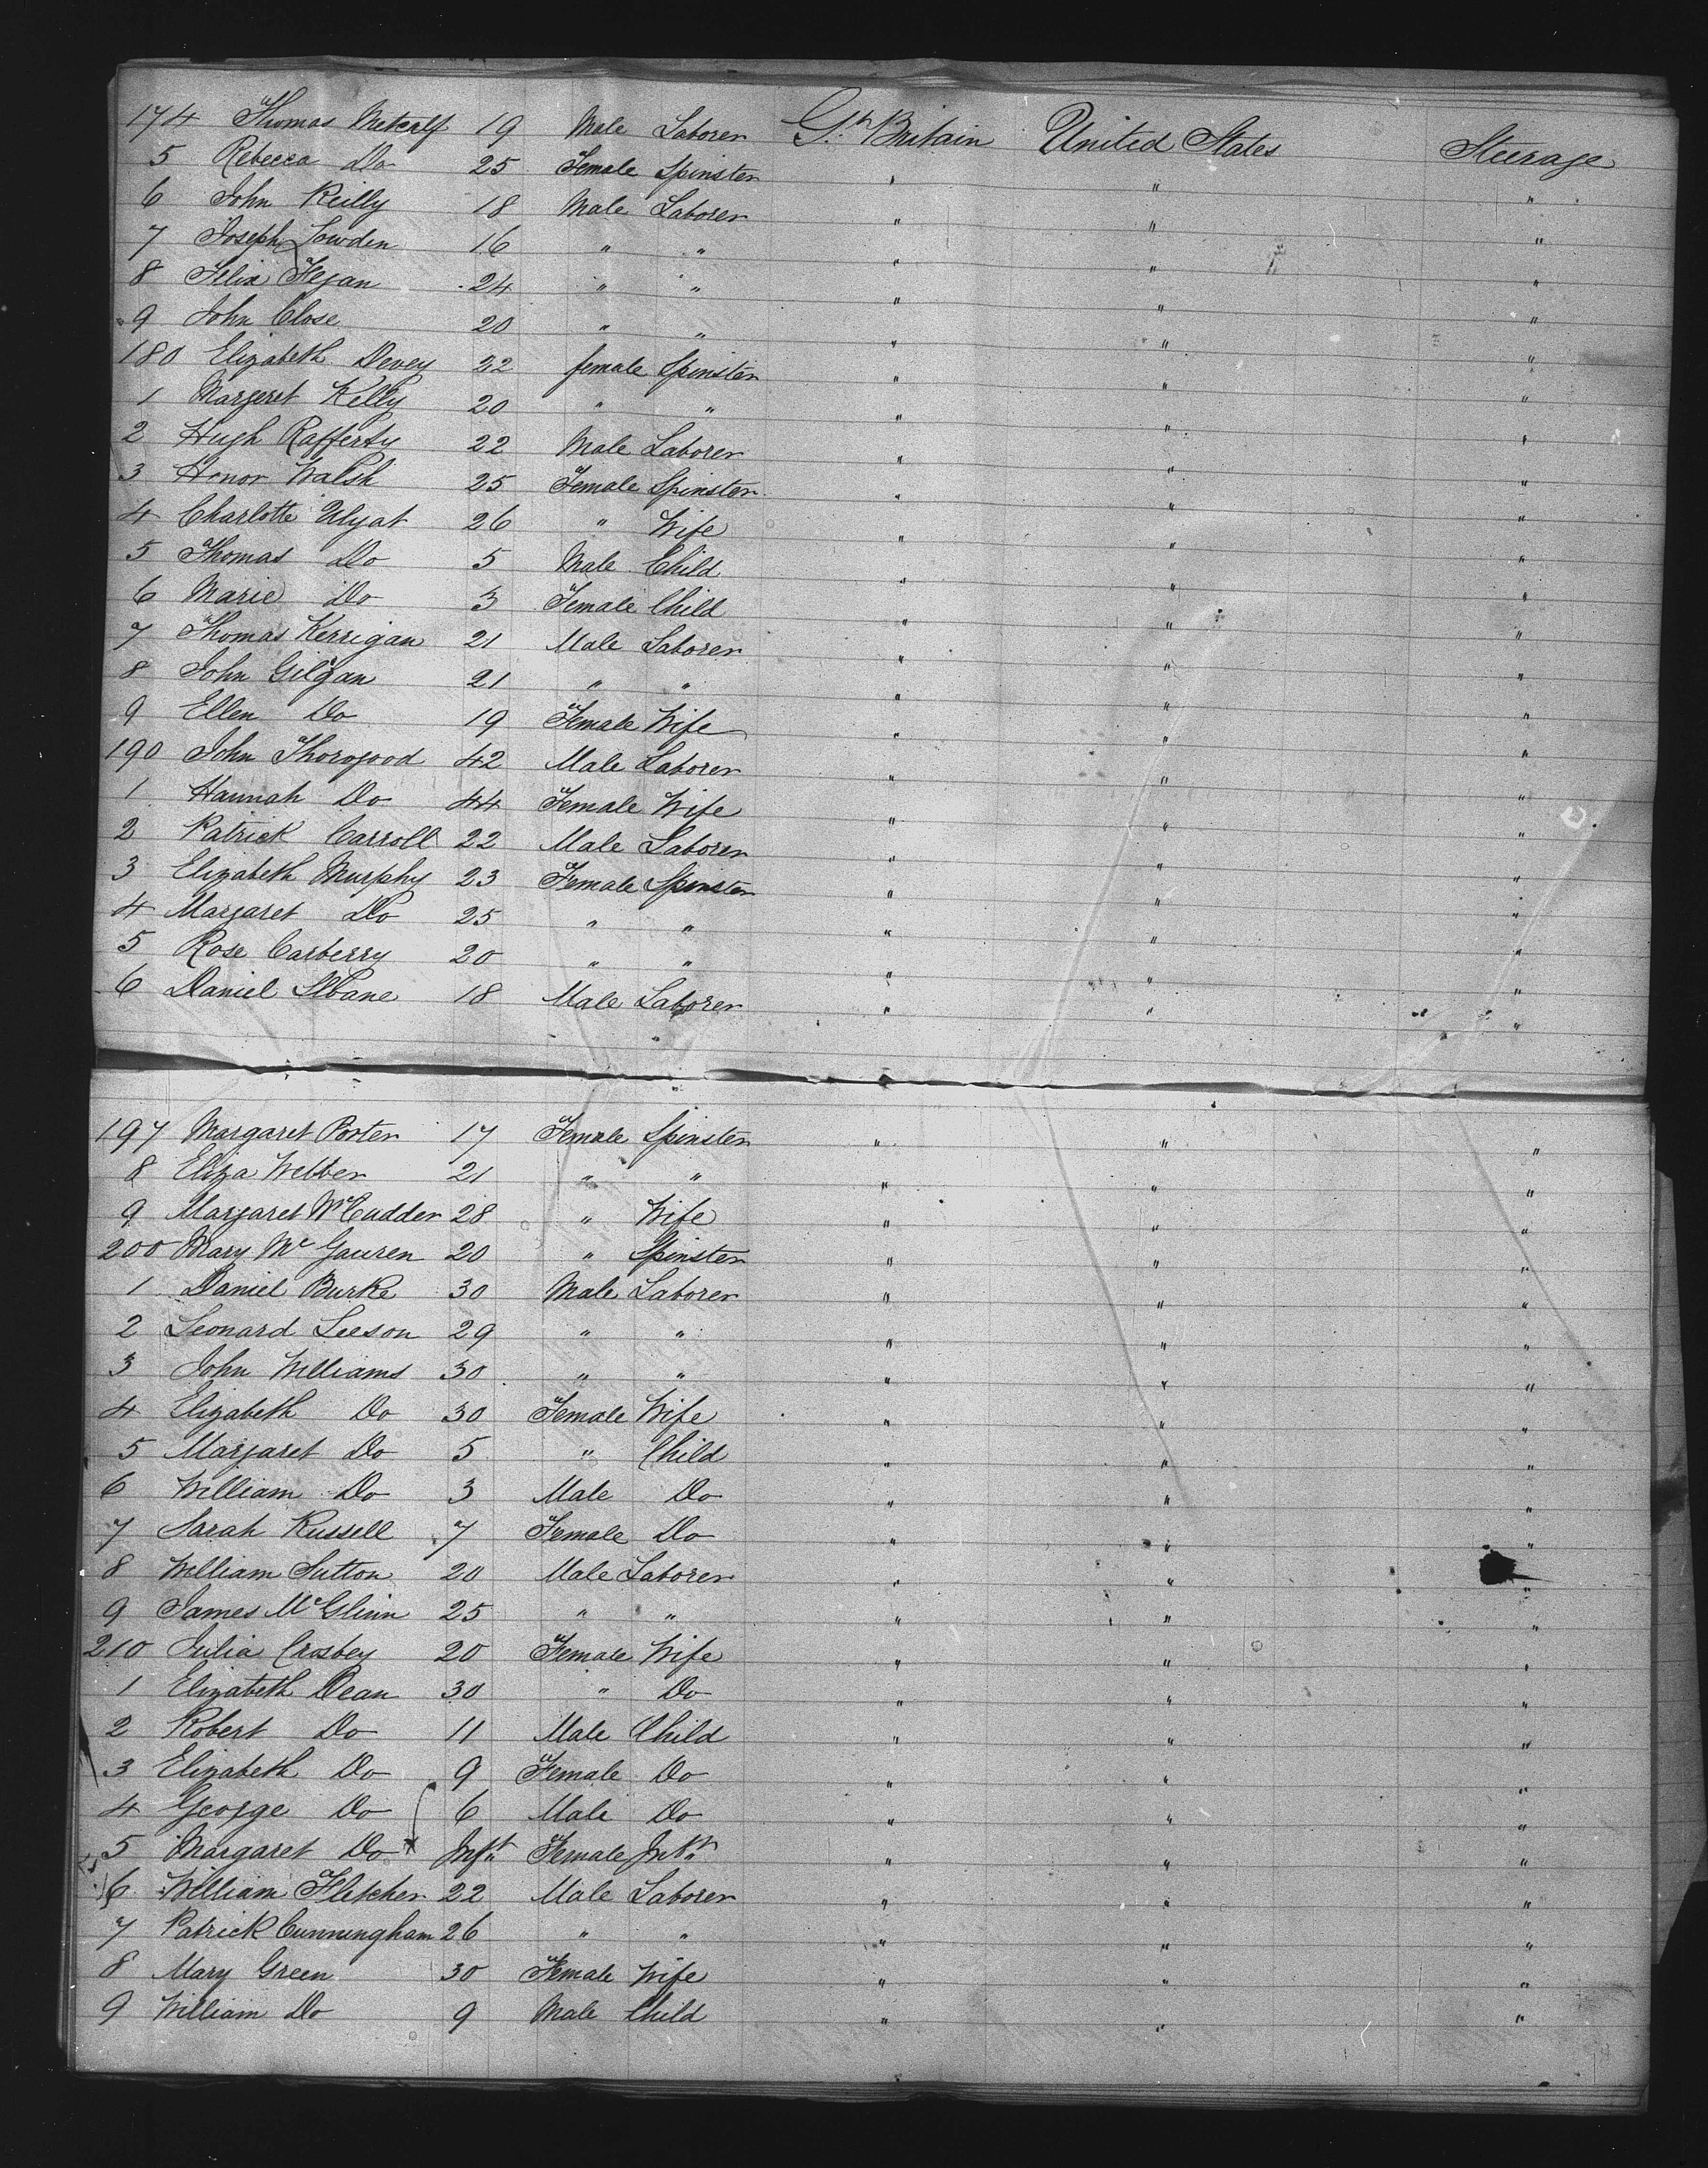 174 Thomas Metcalf 19 Male Laborer Gt. Britain United States Steerage
5 Rebecca Do 25 Female Spinster " " "
6 John Reilly 18 Male Laborer " " "
7 Joseph Lowden 16 " " " " "
8 Felix Fegan 24 " " " " "
9 John Close 20 " " " " "
180 Elizabeth Devey 22 female Spinster " " "
1 Margeret Kelly 20 " " " " "
2 Hugh Rafferty 22 Male Laborer " " "
3 Honor Walsh 25 Female Spinster " " "
4 Charlotte Ulyat 26 " Wife " " "
5 Thomas Do 5 Male Child " " "
6 Marie Do 3 Female Child " " "
7 Thomas Kerrigan 21 Male Laborer " " "
8 John Gilgan 21 " " " " "
9 Ellen Do 19 Female Wife " " "
190 John Thorogood 42 Male Laborer " " "
1 Hannah Do 44 Female Wife " " "
2 Patrick Carroll 22 Male Laborer " " "
3 Elizabeth Murphy 23 Female Spinster " " "
4 Margaret Do 25 " " " " "
5 Rose Carberry 20 " " " " "
6 Daniel 18 Male Laborer " " "
197 Margaret Porter 17 Female Spinster " " "
8 Eliza Webber 21 " " " " "
9 Margaret McCadder 28 " Wife " " "
200 Mary Mc Gauren 20 " Spinster " " "
1 Daniel Burke 30 Male Laborer " " "
2 Leonard Leeson 29 " " " " "
3 John Williams 30 " " " " "
4 Elizabeth Do 30 Female Wife " " "
5 Margaret Do 5 " Child " " "
6 William Do 3 Male Do " " "
7 Sarah Russell 7 Female Do " " "
8 William Sutton 20 Male Laborer " " "
9 James McGlinn 25 " " " " "
210 Julia Crosbey 20 Female Wife " " "
1 Elizabeth Dean 30 " Do " " "
2 Robert Do 11 Male Child " " "
3 Elizabeth Do 9 Female Do " " "
4 George Do 6 Male Do " " "
5 Margaret Do Inft Female Inft " " "
6 William Fletcher 22 Male Laborer " " "
7 Patrick Cunningham 26 " " " " "
8 Mary Green 30 Female Wife " " "
9 William Do 9 Male Child " " "